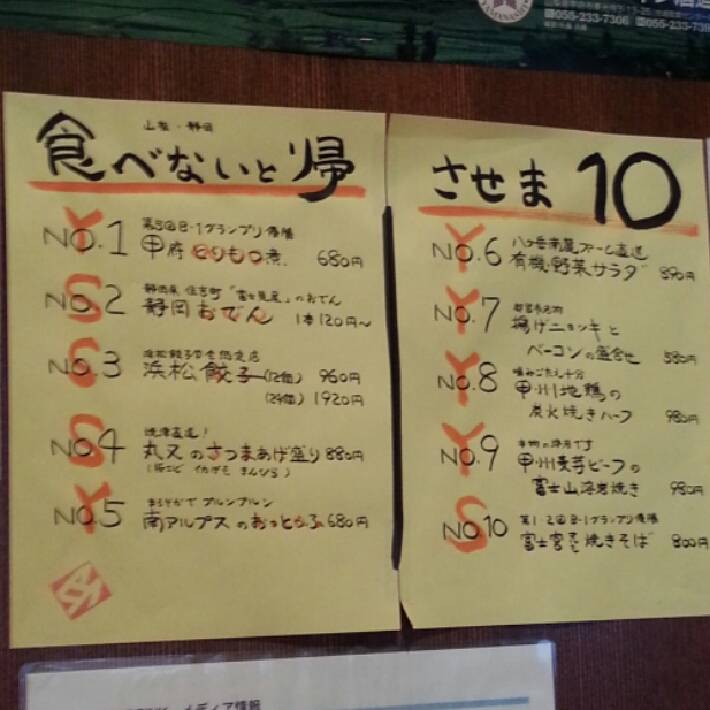 055-233-7306
山梨・静岡
食べないと帰
NO.1 第5回B-1グランプリ優勝
甲府とりもつ煮 680円
NO.2 静岡県 住吉町「富士見屋」のおでん
静岡おでん 1本120円〜
NO.3 浜松餃子
浜松餃子(12個) 960円
(24個) 1920円
NO.4 焼津直送!
丸又のさつまあげ盛り 880円
NO.5 まろやかで プルンプルン
南アルプスのおっとうふ 680円
させま10
NO.6 八ヶ岳南麓ファーム直送
有機野菜サラダ 890円
NO.7
揚げニョッキと
ベーコンの盛合せ 580円
NO.8 噛みごたえ十分
甲州地鶏の
炭火焼きハーフ 980円
NO.9
甲州麦芽ビーフの
富士山溶岩焼き 980円
NO.10 第1・2回B-1グランプリ優勝
富士宮焼きそば 800円
メディア情報